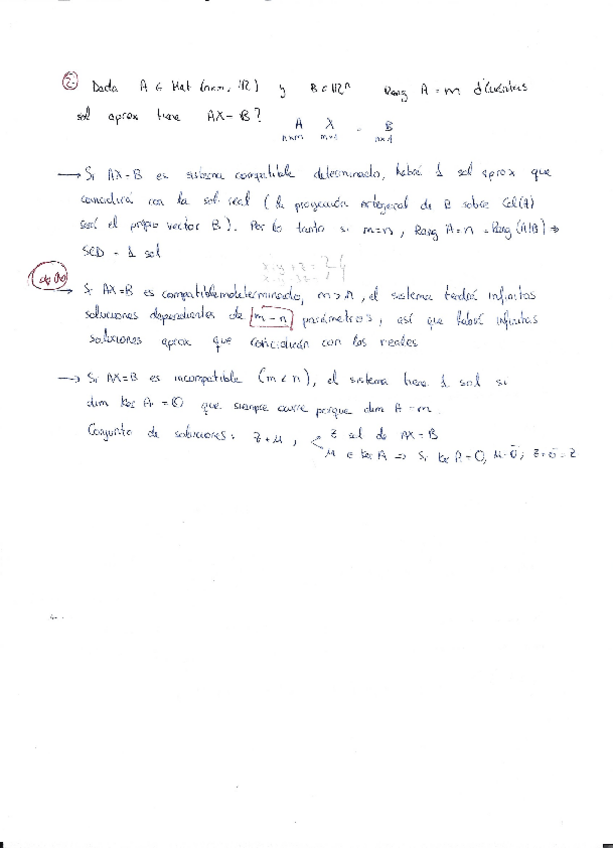 2. Dada A ∈ Mat (n×m, ℝ) y B ∈ ℝⁿ Rang A = m ¿Cuántas
sol aprox tiene AX = B?
A X = B
n×m m×1 n×1
→ Si AX = B es sistema compatible determinado, habrá 1 sol aprox que
coincidirá con la sol. real (la proyección ortogonal de B sobre Col(A)
será el propio vector B). Por lo tanto si m=n, Rang A = n = Rang (A|B) ⇒
SCD = 1 sol
→ Si AX=B es compatible indeterminado, m > n, el sistema tendrá infinitas
soluciones dependientes de m - n parámetros, así que habrá infinitas
soluciones aprox que coincidirán con las reales
→ Si AX=B es incompatible (m < n), el sistema tiene 1 sol si
dim Ker A = 0 que siempre ocurre porque dim A = m.
Conjunto de soluciones: Z + μ, Z sol de AX = B
μ ∈ Ker A ⇒ Si Ker A = 0, μ = 0; Z + 0 = Z